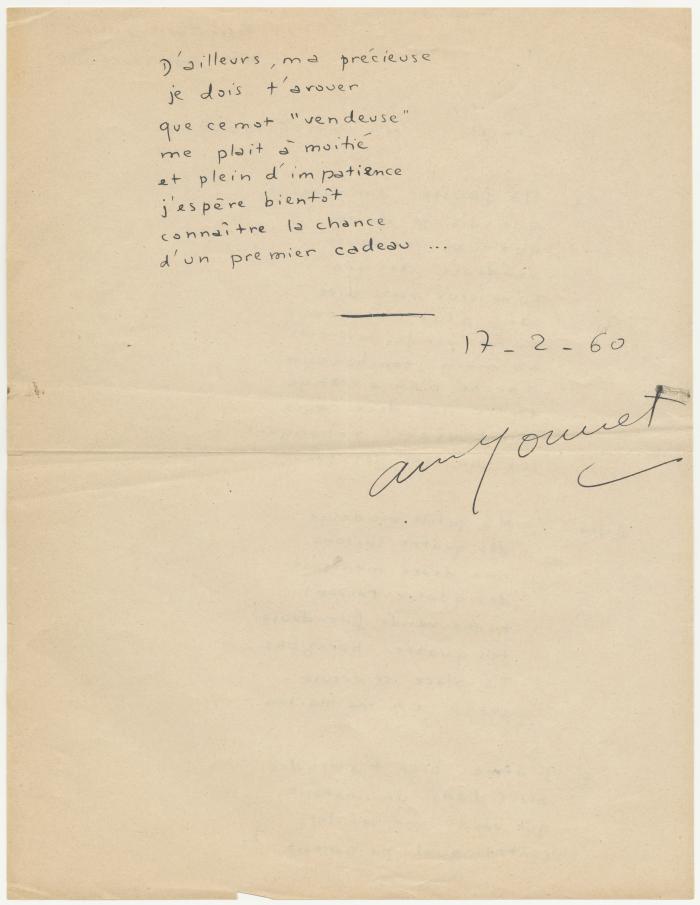 D'ailleurs, ma précieuse
je dois t'avouer
que ce mot "vendeuse"
me plait à moitié
et plein d'impatience
j'espère bientôt
connaître la chance
d'un premier cadeau ...
17 - 2 - 60